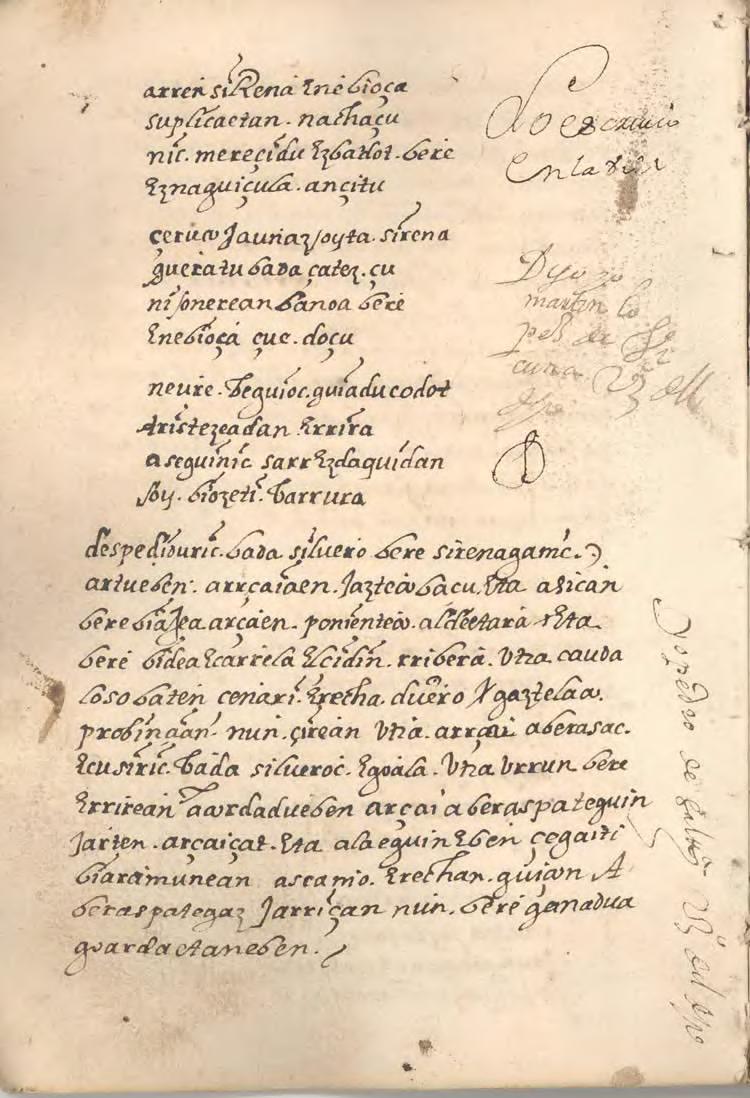 arren siRena Enebioça
suplicaetan. nachaçu
nic. mereçidu Ezbadot. bere
Eznaguiçula. ançitu
çerura Jaunaz/oyta. sirena
gueratu bada çatez. çu
ni /onerean banoa bere
Enebioça çuc. doçu
neure. beguioc. guiaducodot
tristezeadan Errira
aseguinic sarr Ezdaquidan
/oy. biozeti. barrura
despediduric. bada siluero bere sirenagaric.
artueben. arrçaiaen. Jazteco bacu. Eta asican
bere biajea arçaen. ponienteco. aldeetara Eta
bere bidea Ecarrela Elcidin. rribera. Vra cauda
loso baten cenari. Eretha. duero Gaztelaco.
probinçian. nun. çirean Vra. arrçai aberasac.
Ecusiric. bada silueroc. Egoala. Vra Vrrun bere
Errirean aordadueben arçai aberaspateguin
Jarten. arçaiçat. Eta ala eguin Eben çegaiti
biaramunean ascanio. Erechan. guion A
beraspategaz Jarriçan nun. bere ganadua
guardaetaneben.
Yo
En la
Digo yo
martin lo
pes de
Yo pedro de